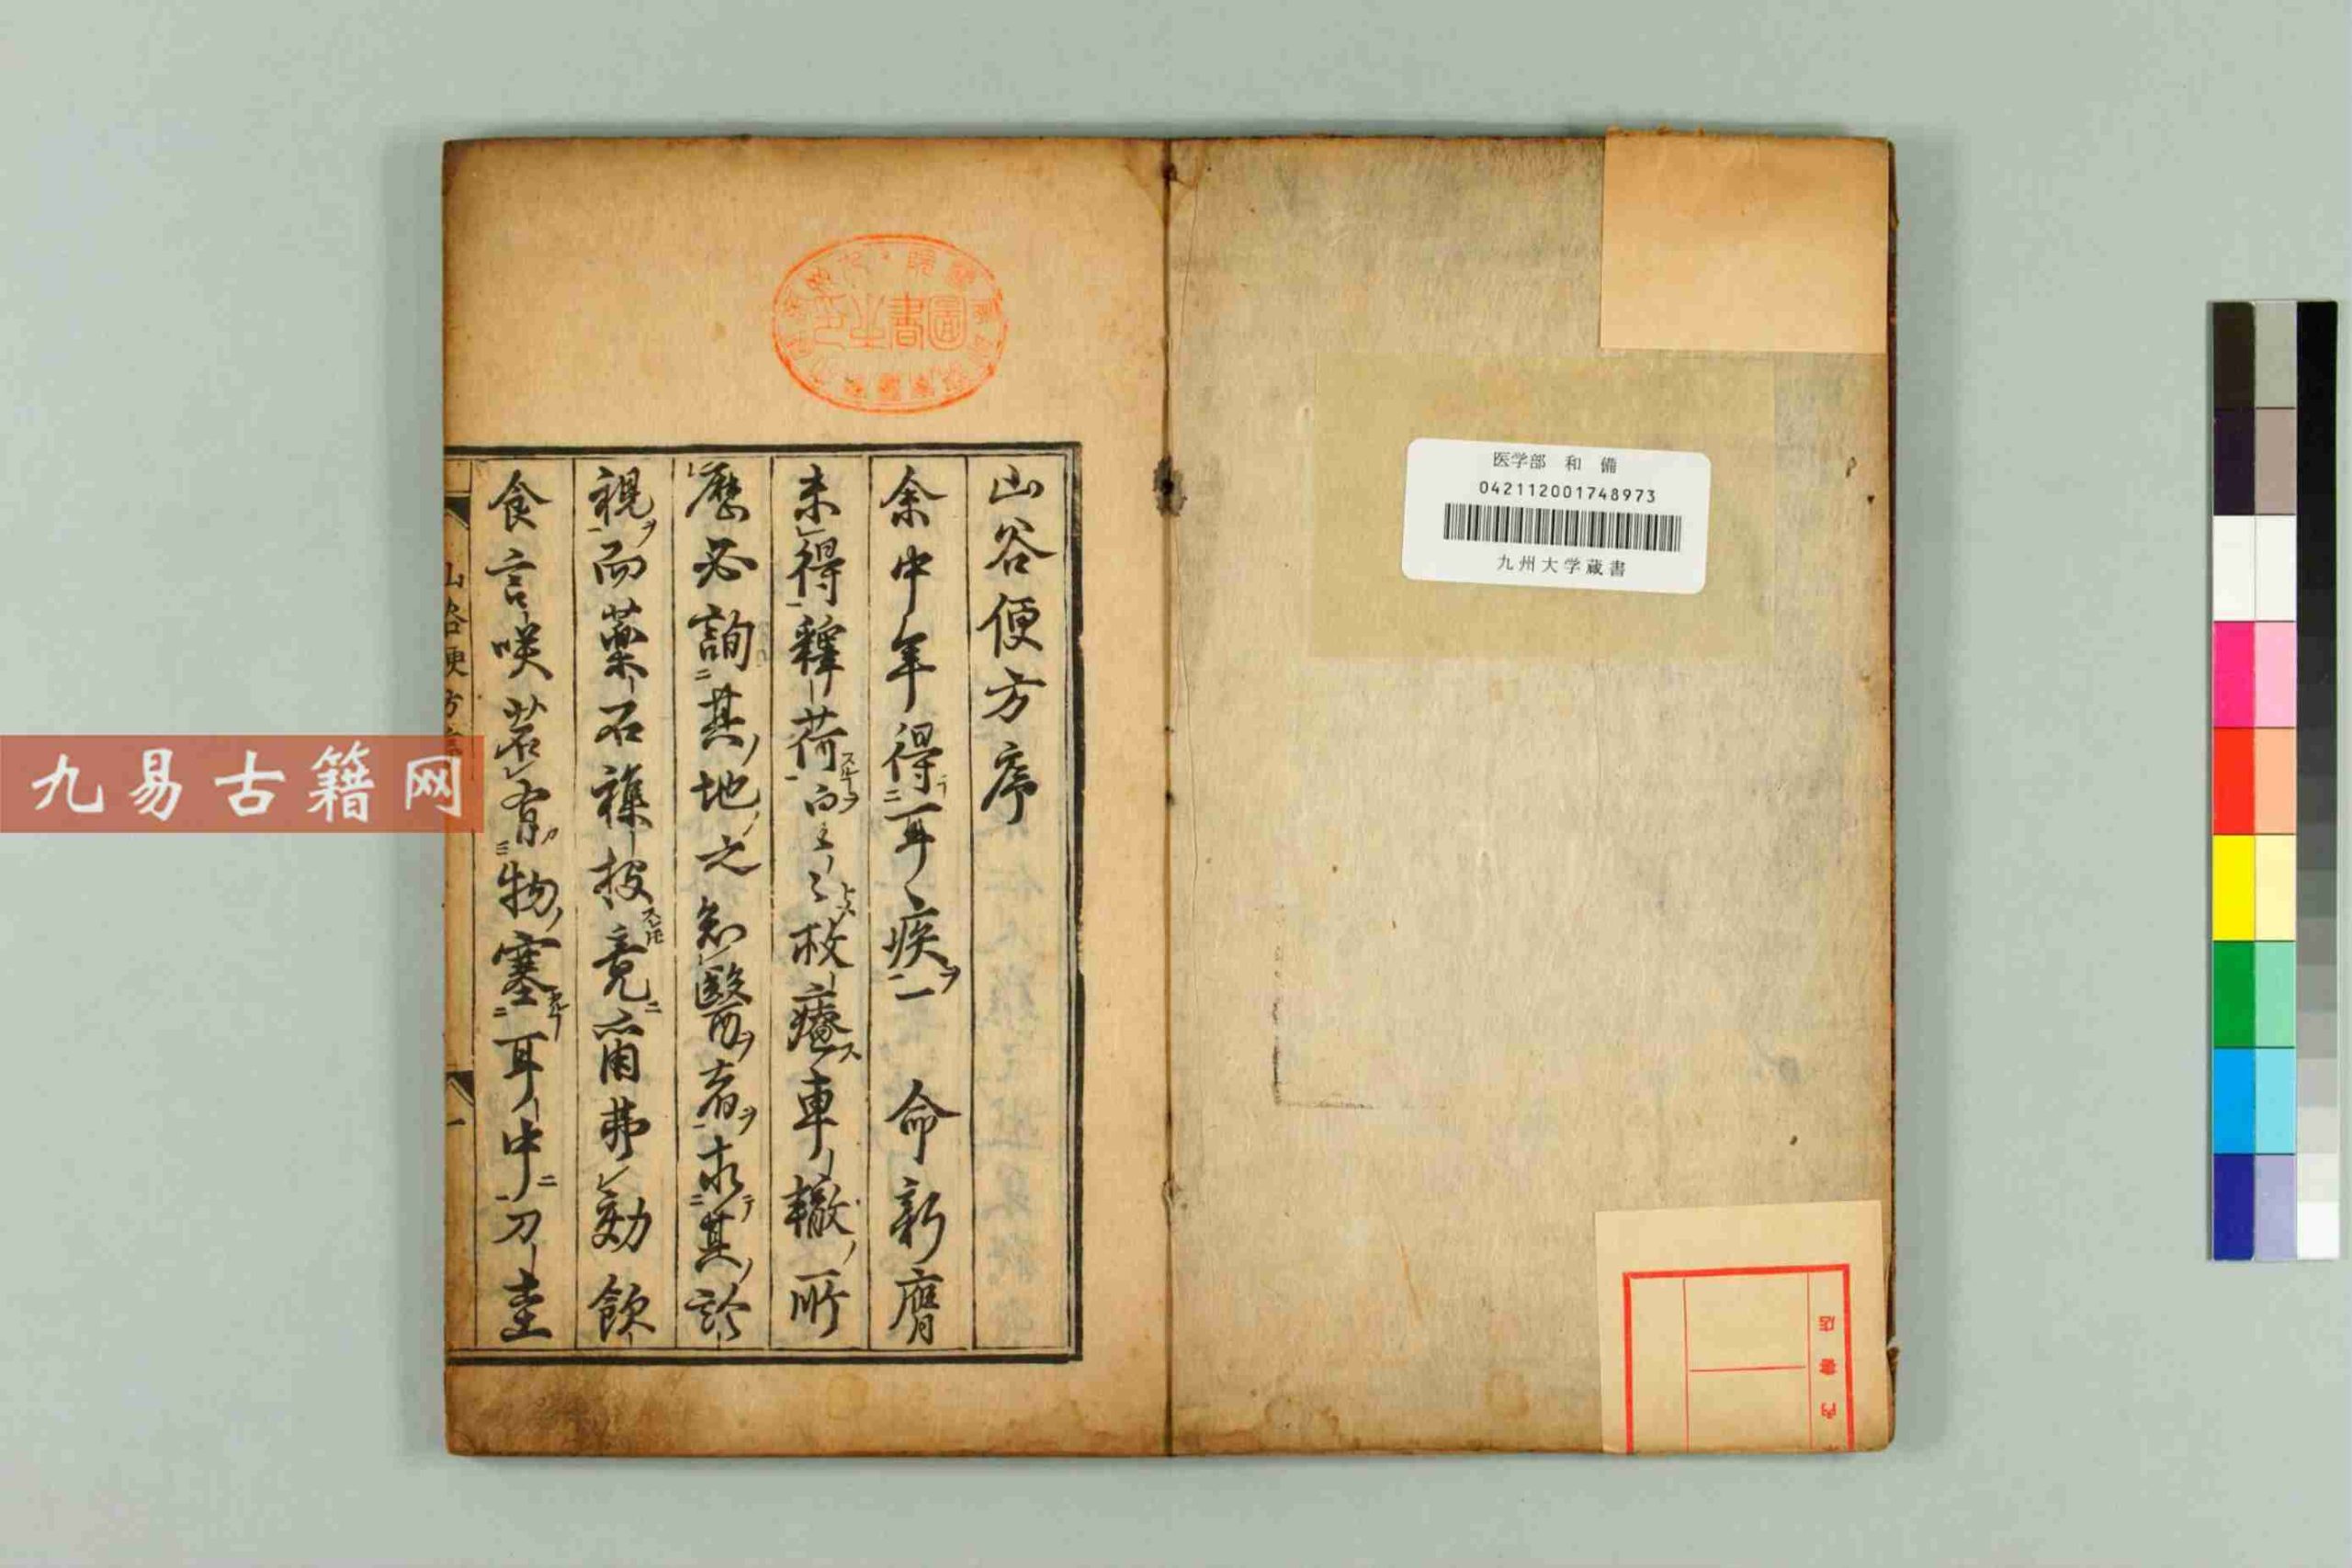 医学部 和 備
042112001748973
九州大学蔵書
店
書
内
山谷便方序
余中年得耳疾一 命新膺
未得釋荷向
枚癃車轍所
歷必詢其地之名醫者求其診
視而藥石襍投竟爾弗効飲
食言咲若有物塞耳中刀圭
山谷便方序
一
九易古籍网